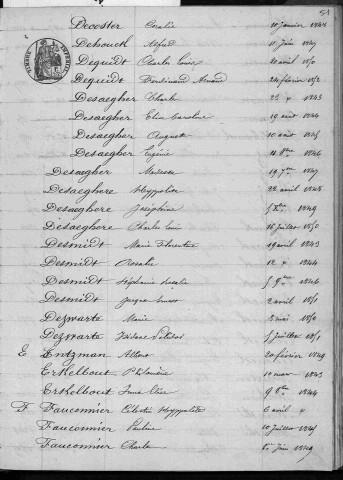 51
Decoster 10 janvier 1844
Dehouck Alfred 11 juin 1847
Dequidt Charles Louis 20 avril 1850
Dequidt Ferdinand Amand 24 février 1852
Desaegher Charles 23 1843
Desaegher Elise Caroline 19 août 1844
Desaegher Auguste 10 août 1845
Desaegher Eugénie 1846
Desaegher 19 7bre 1847
Desaeghere Hyppolite 22 avril 1848
Desaeghere Joséphine 1849
Desaeghere Charles Louis 16 juillet 1850
Desmidt Marie Florentine 19 avril 1843
Desmidt Rosalie 12 1844
Desmidt Stéphanie 1846
Desmidt 2 avril 1851
Dezwarte Marie 1850
Dezwarte Isidore juillet 1851
E Entzman 20 février 1849
Erkelbout Philomène 10 mars 1843
Erkelbout 1844
F Fauconnier Célestin Hyppolite 6 avril
Fauconnier Pauline 10 juillet 1845
Fauconnier Charles juin 1849